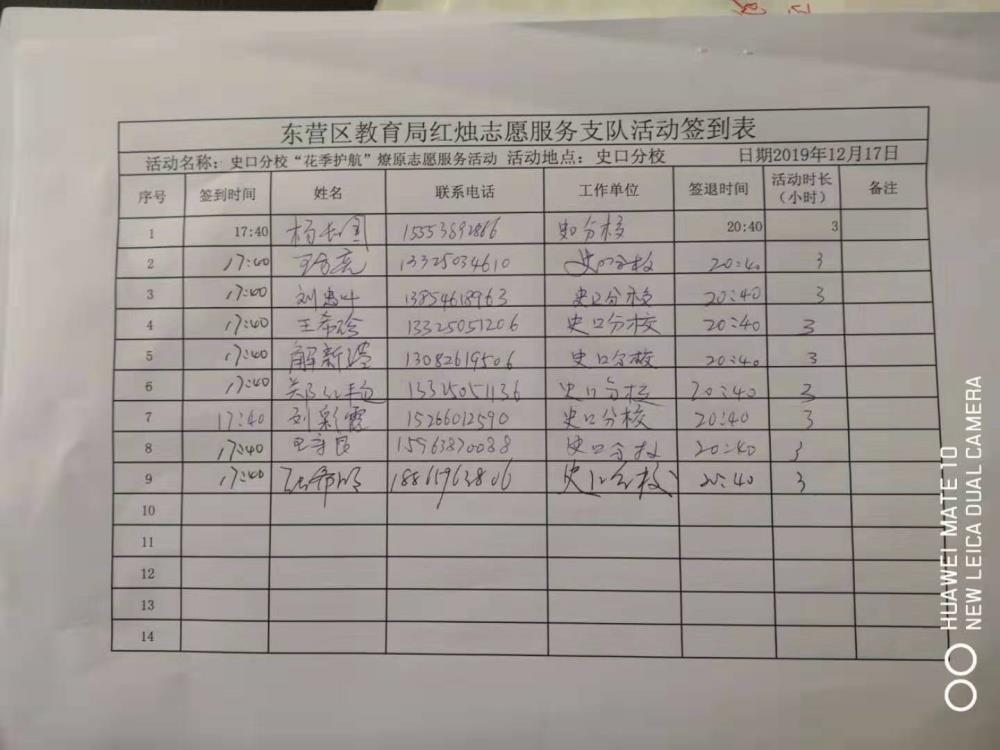 东营区教育局红烛志愿服务支队活动签到表
活动名称：史口分校“花季护航”燎原志愿服务活动 活动地点：史口分校 日期2019年12月17日
序号 签到时间 姓名 联系电话 工作单位 签退时间 活动时长（小时） 备注
1 17:40 杨长国 15553892866 史口分校 20:40 3
2 17:40 13325034610 史口分校 20:40 3
3 17:40 13854618963 史口分校 20:40 3
4 17:40 王希玲 13325051206 史口分校 20:40 3
5 17:40 13082619506 史口分校 20:40 3
6 17:40 13325051136 史口分校 20:40 3
7 17:40 刘彩霞 15266012590 史口分校 20:40 3
8 17:40 15963870088 史口分校 20:40 3
9 17:40 18865963806 史口分校 20:40 3
10
11
12
13
14
HUAWEI MATE 10
NEW LEICA DUAL CAMERA